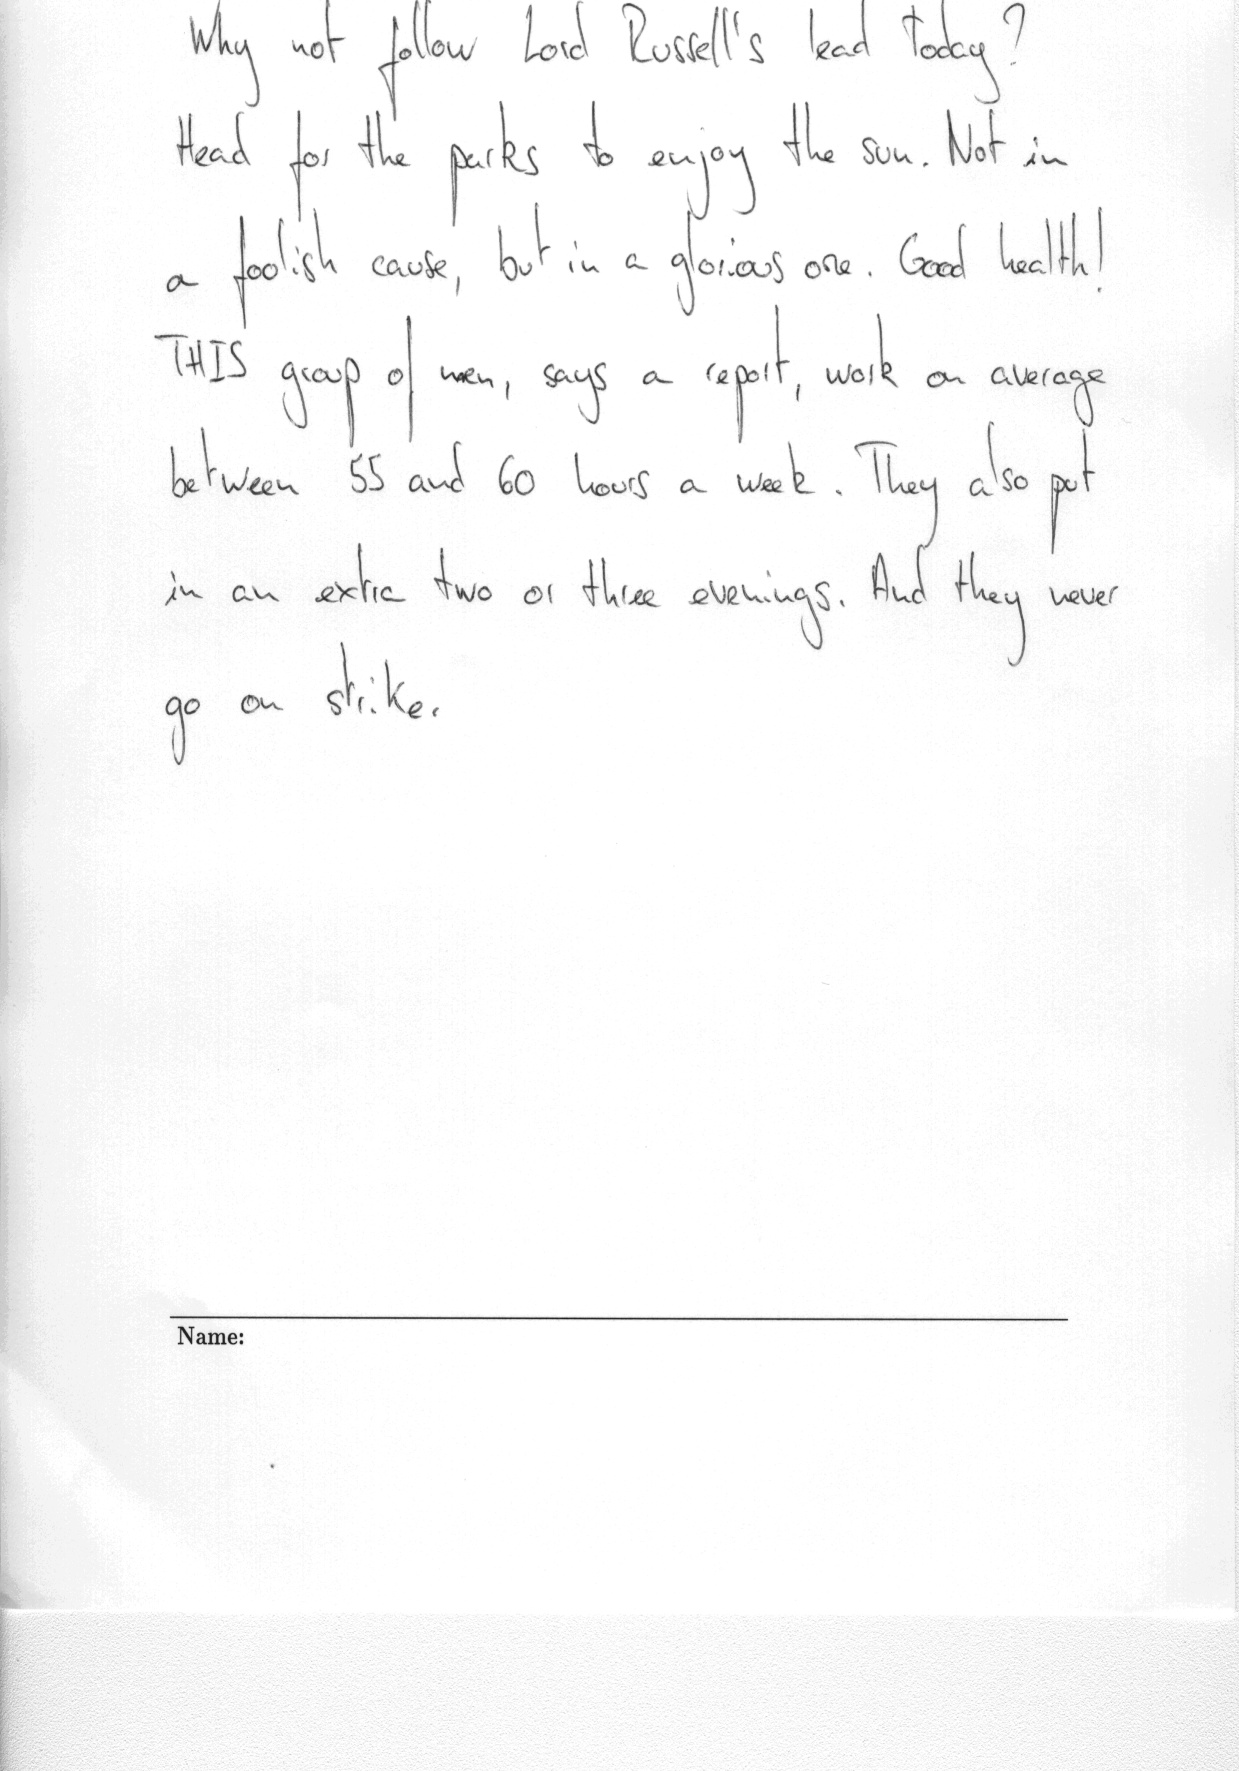 Why not follow Lord Russell's lead today?
Head for the parks to enjoy the sun. Not in
a foolish cause, but in a glorious one. Good health!
THIS group of men, says a report, work on average
between 55 and 60 hours a week. They also put
in an extra two or three evenings. And they never
go on strike.
Name: